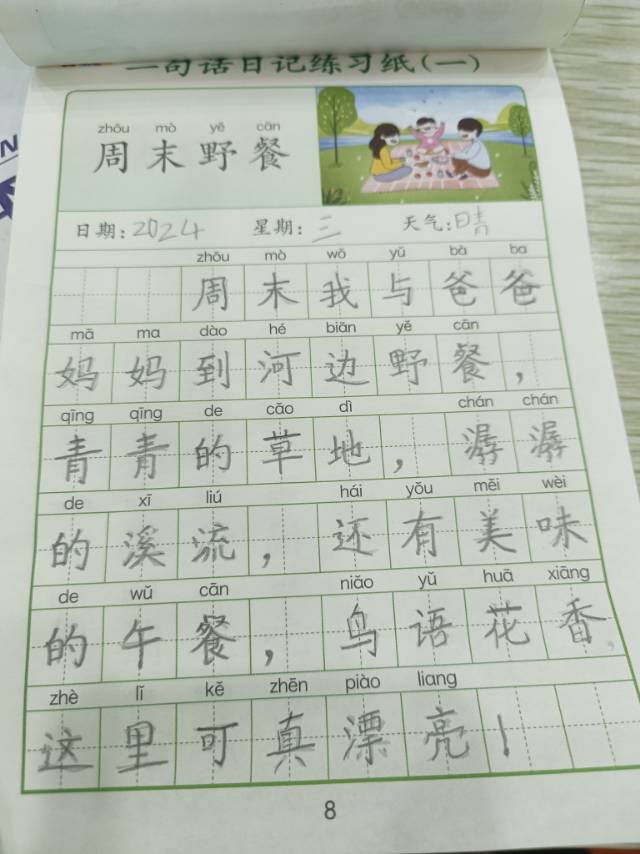 一句话日记练习纸(一)
zhōu mò yě cān
周末野餐
日期:2024 星期:三 天气:日青
zhōu mò wǒ yǔ bà ba
周末我与爸爸
mā ma dào hé biān yě cān
妈妈到河边野餐,
qīng qīng de cǎo dì chán chán
青青的草地,潺潺
de xī liú hái yǒu měi wèi
的溪流,还有美味
de wǔ cān niǎo yǔ huā xiāng
的午餐,鸟语花香,
zhè lǐ kě zhēn piào liang
这里可真漂亮!
8